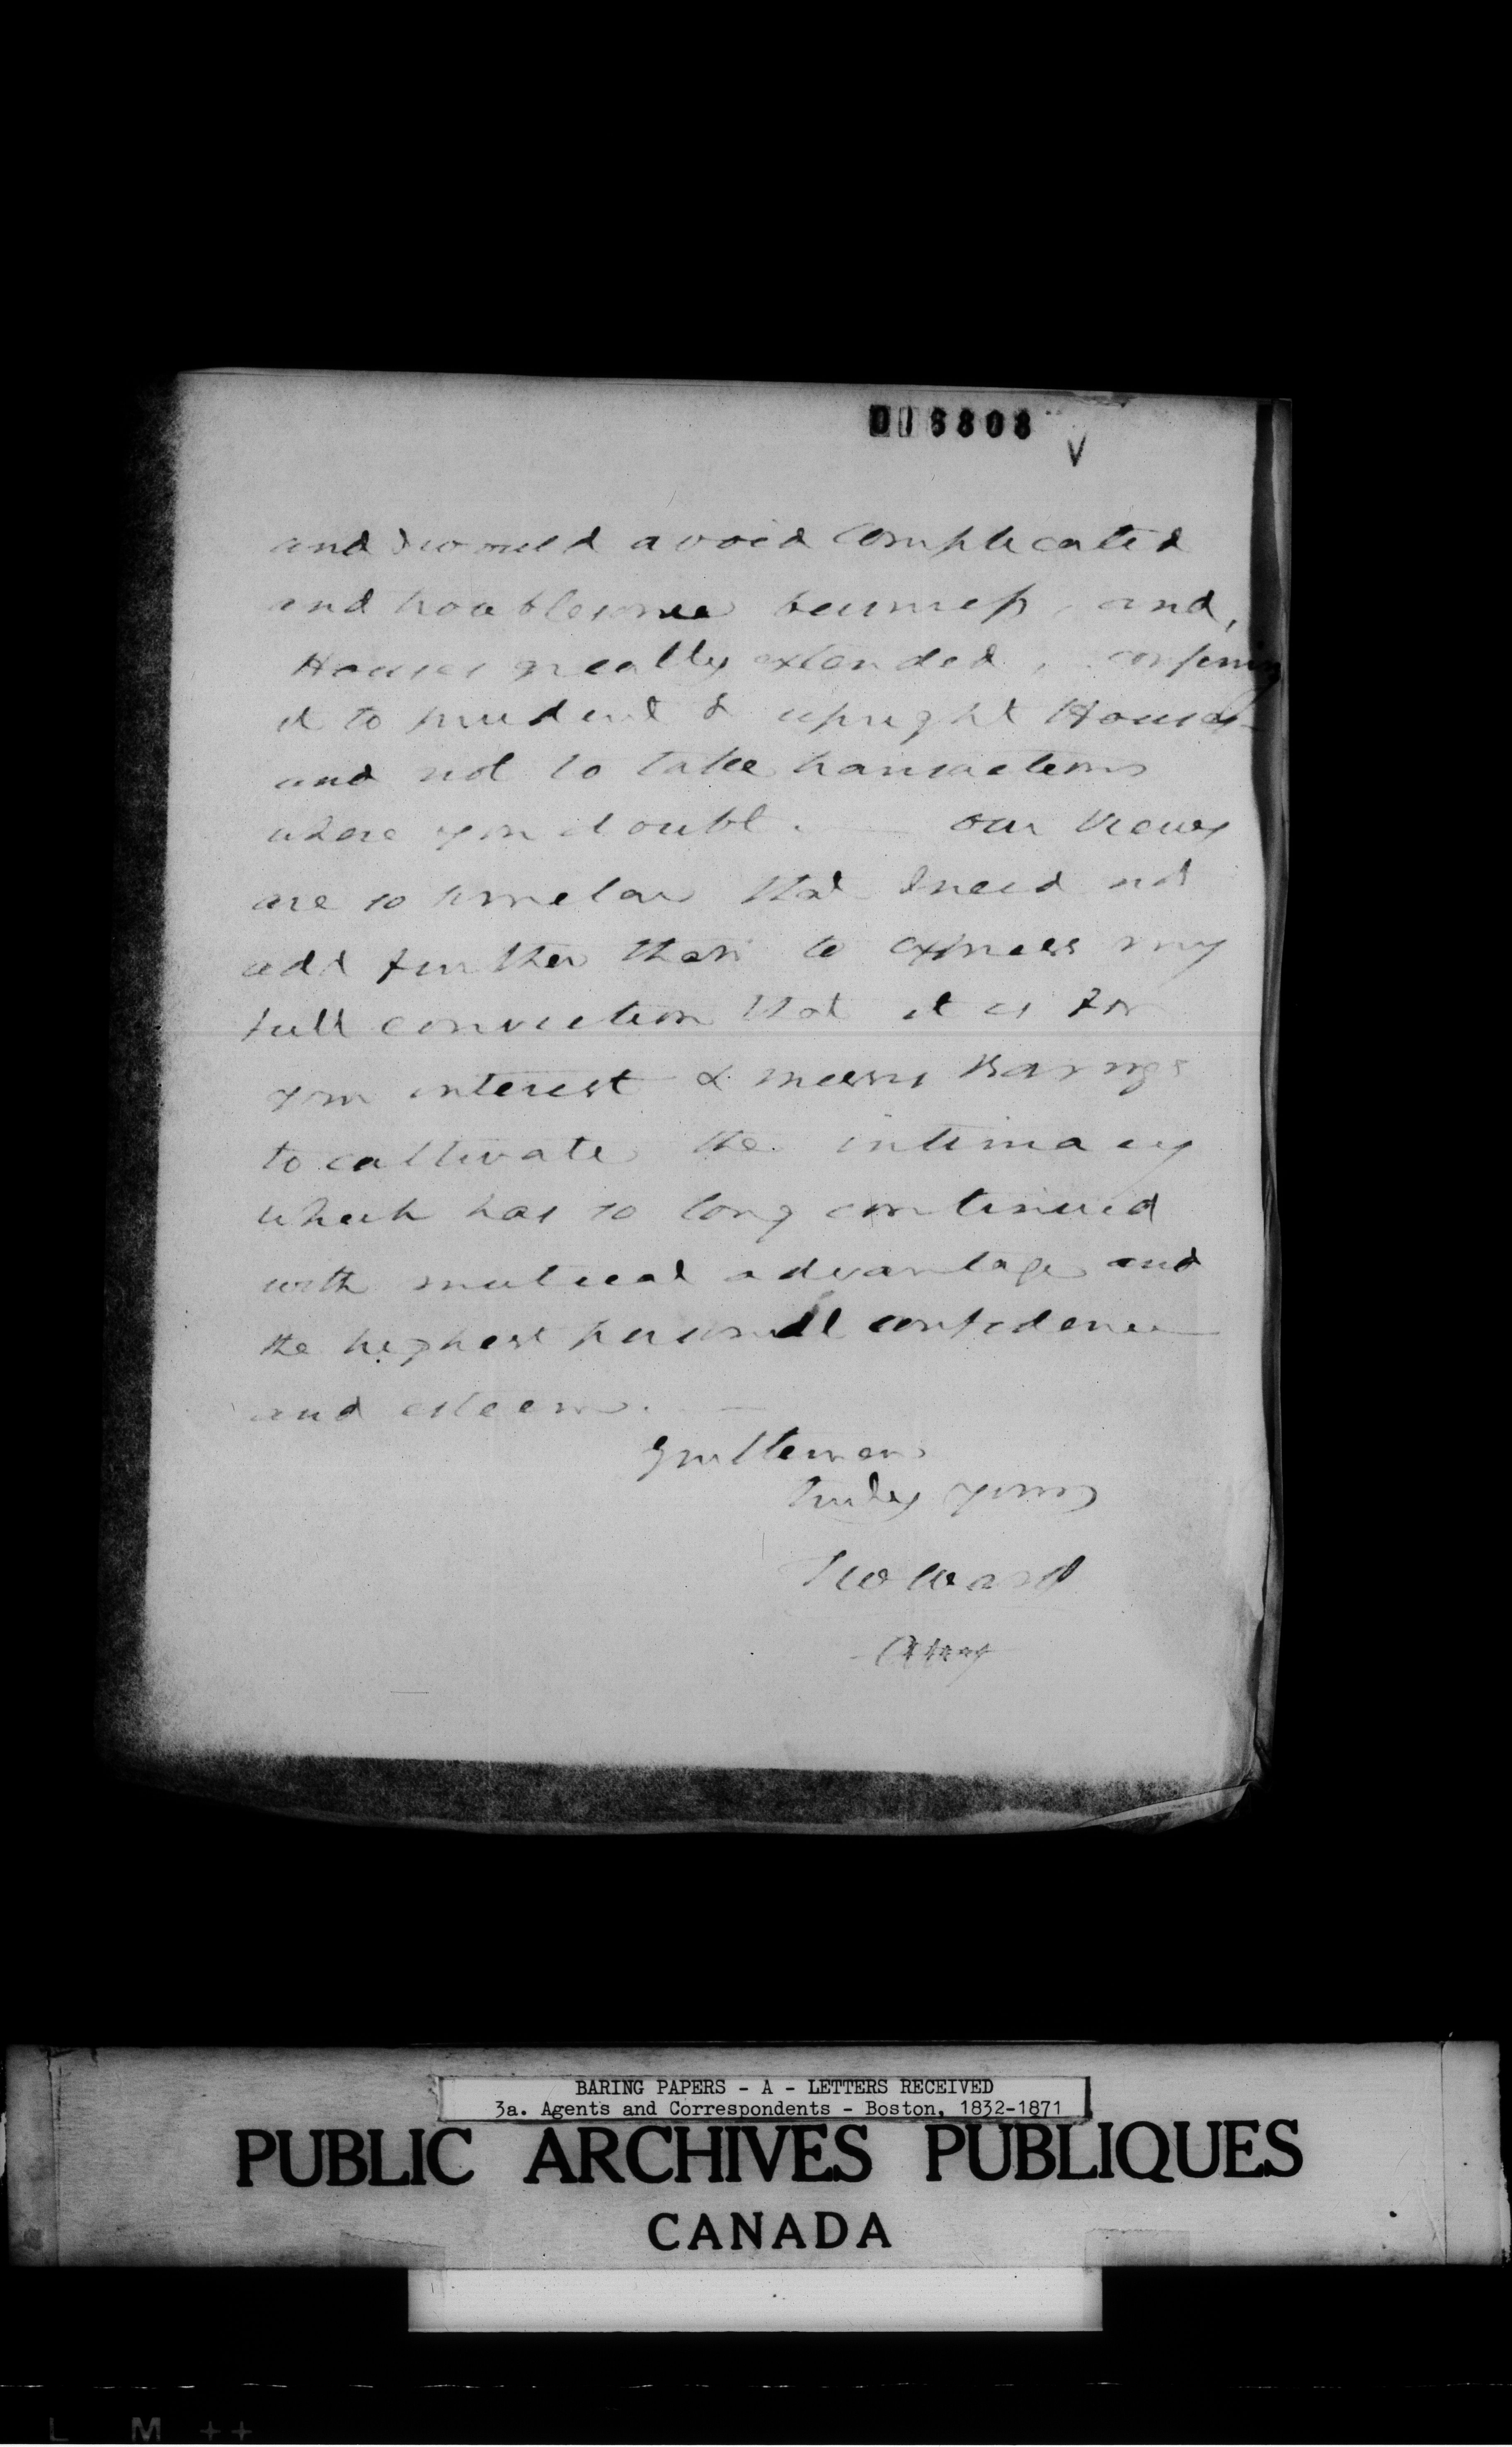 016808
V
and I would avoid complicated
and troublesome business, and,
Houses greatly extended, confining
it to prudent & upright Houses
and not to take transactions
where you doubt. — our views
are so similar that I need not
add further than to express my
full conviction that it is for
your interest & Messrs Barings
to cultivate the intimacy
which has so long continued
with mutual advantage and
the highest personal confidence
and esteem. —
Gentlemen
Truly yours
T W Ward
BARING PAPERS - A - LETTERS RECEIVED
3a. Agents and Correspondents - Boston, 1832-1871
PUBLIC ARCHIVES PUBLIQUES
CANADA
L M ++